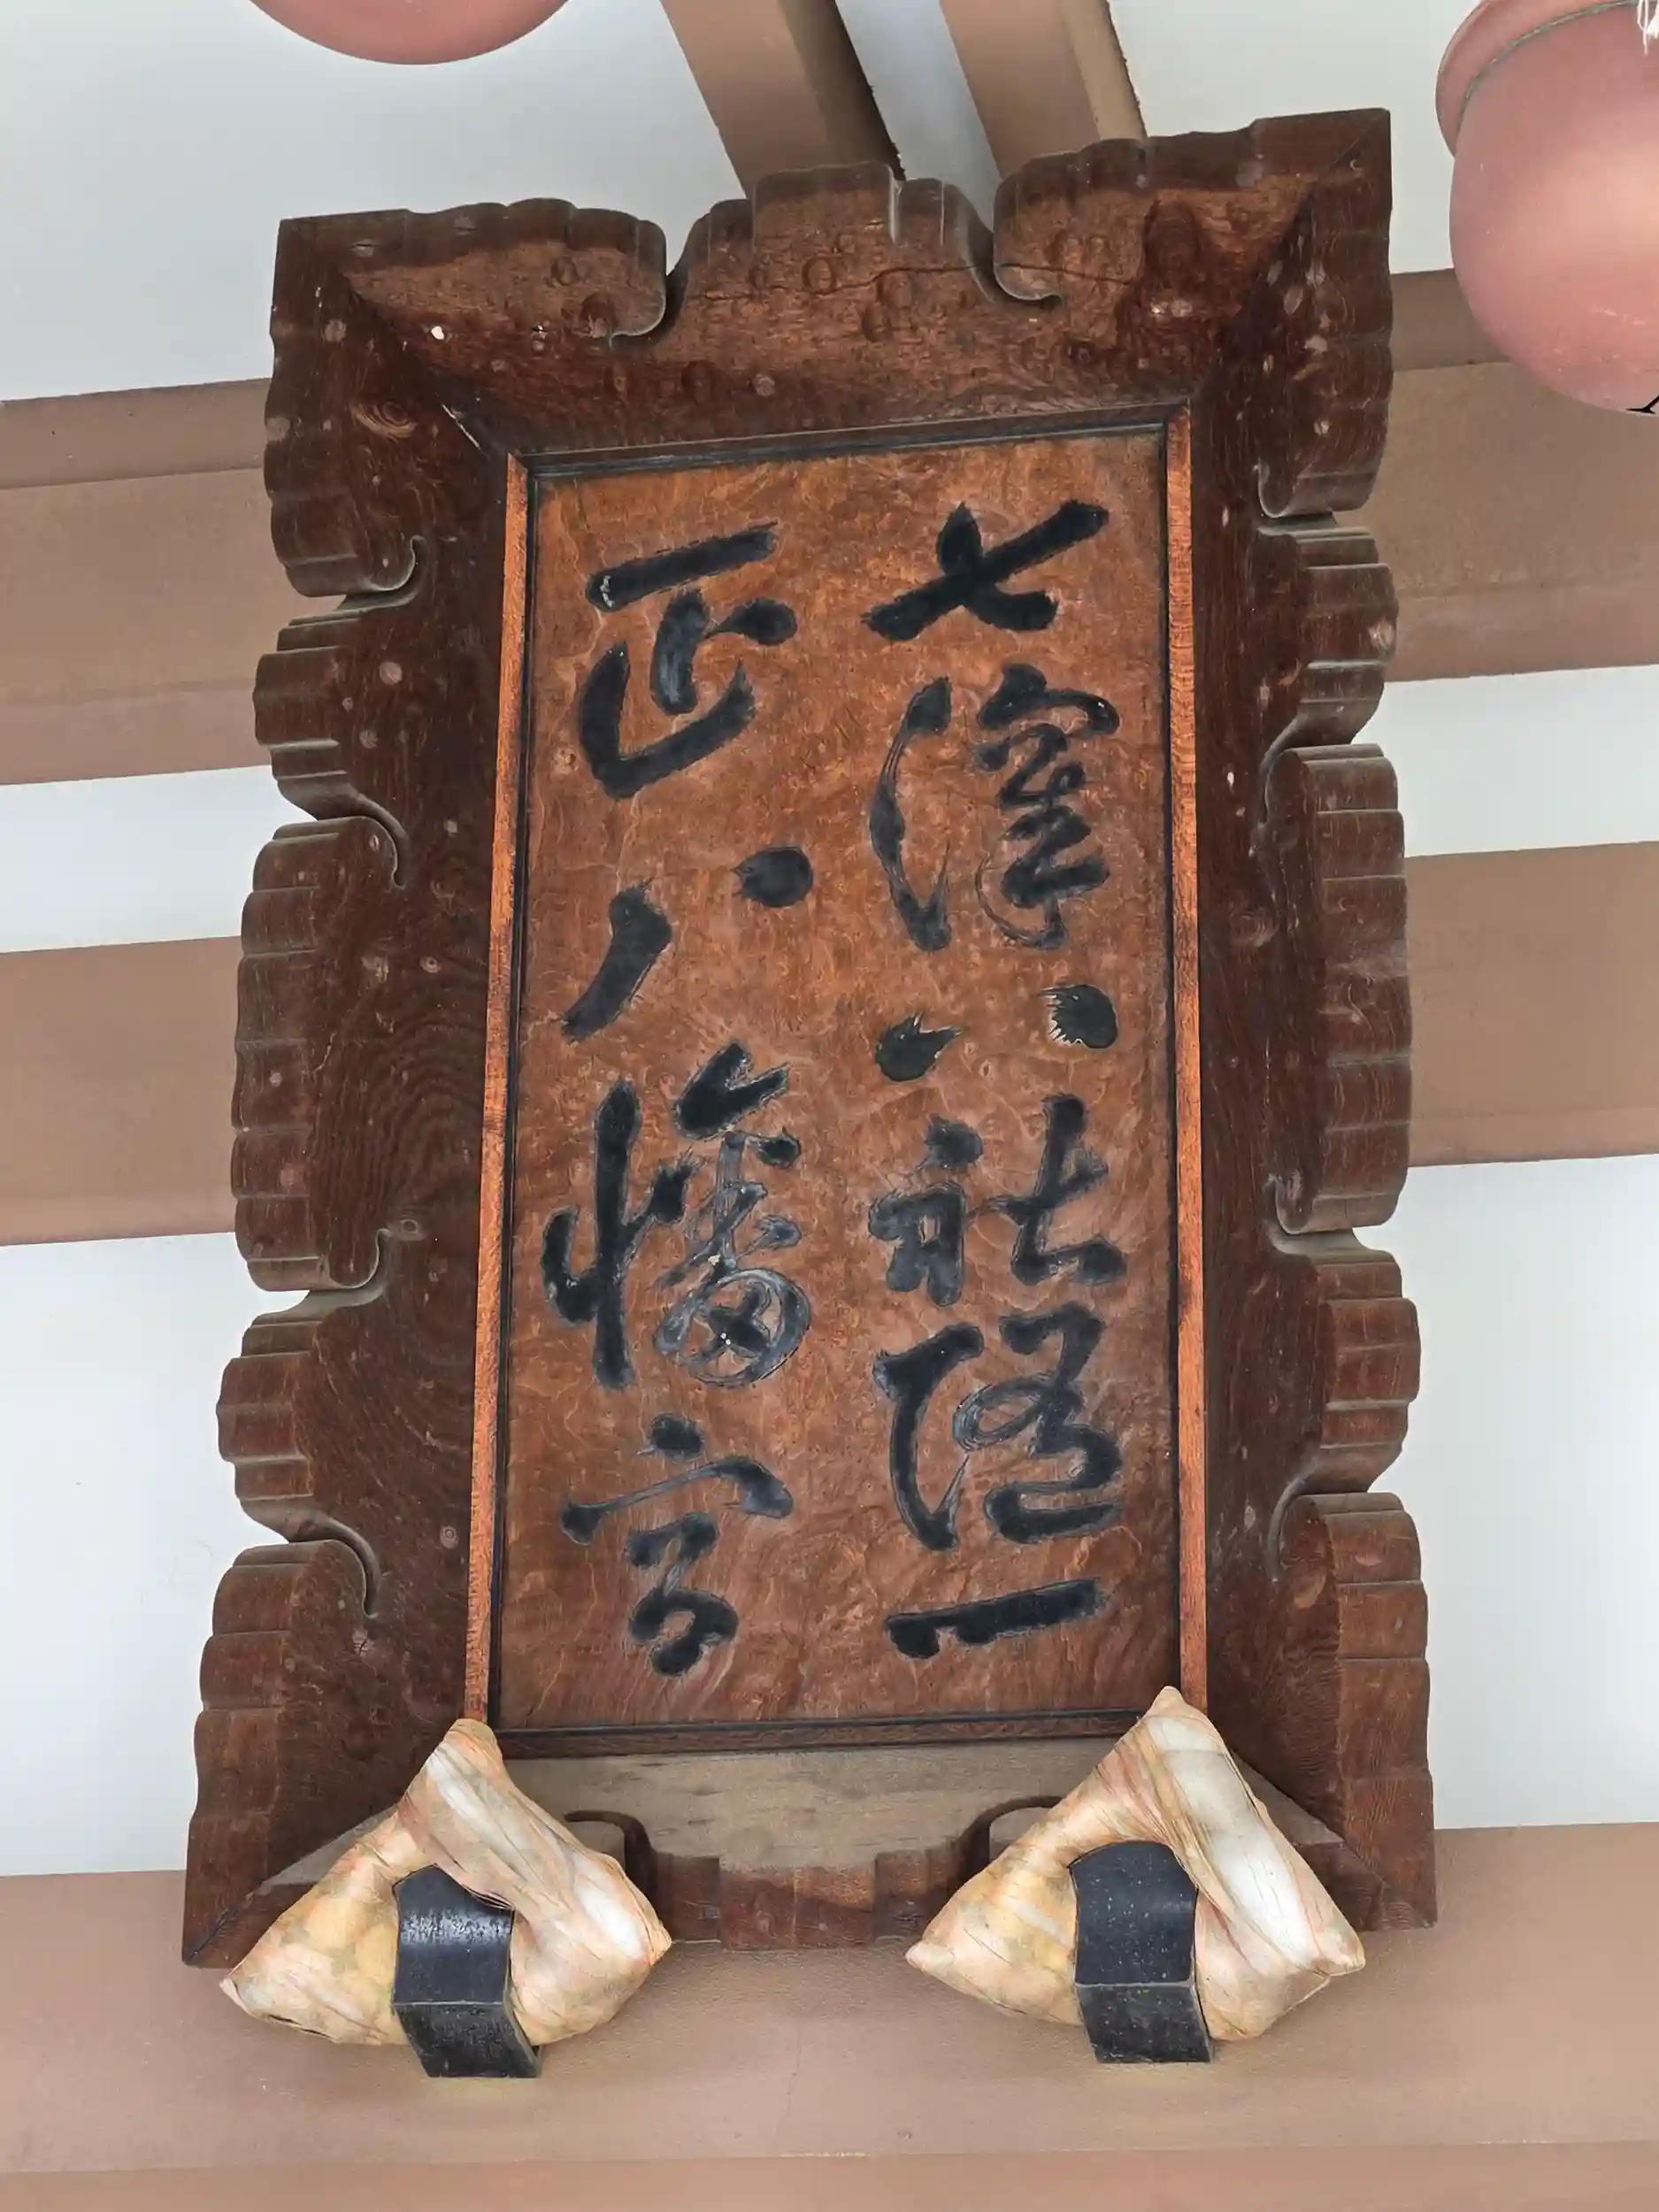 七澤八社随一
正八幡宮